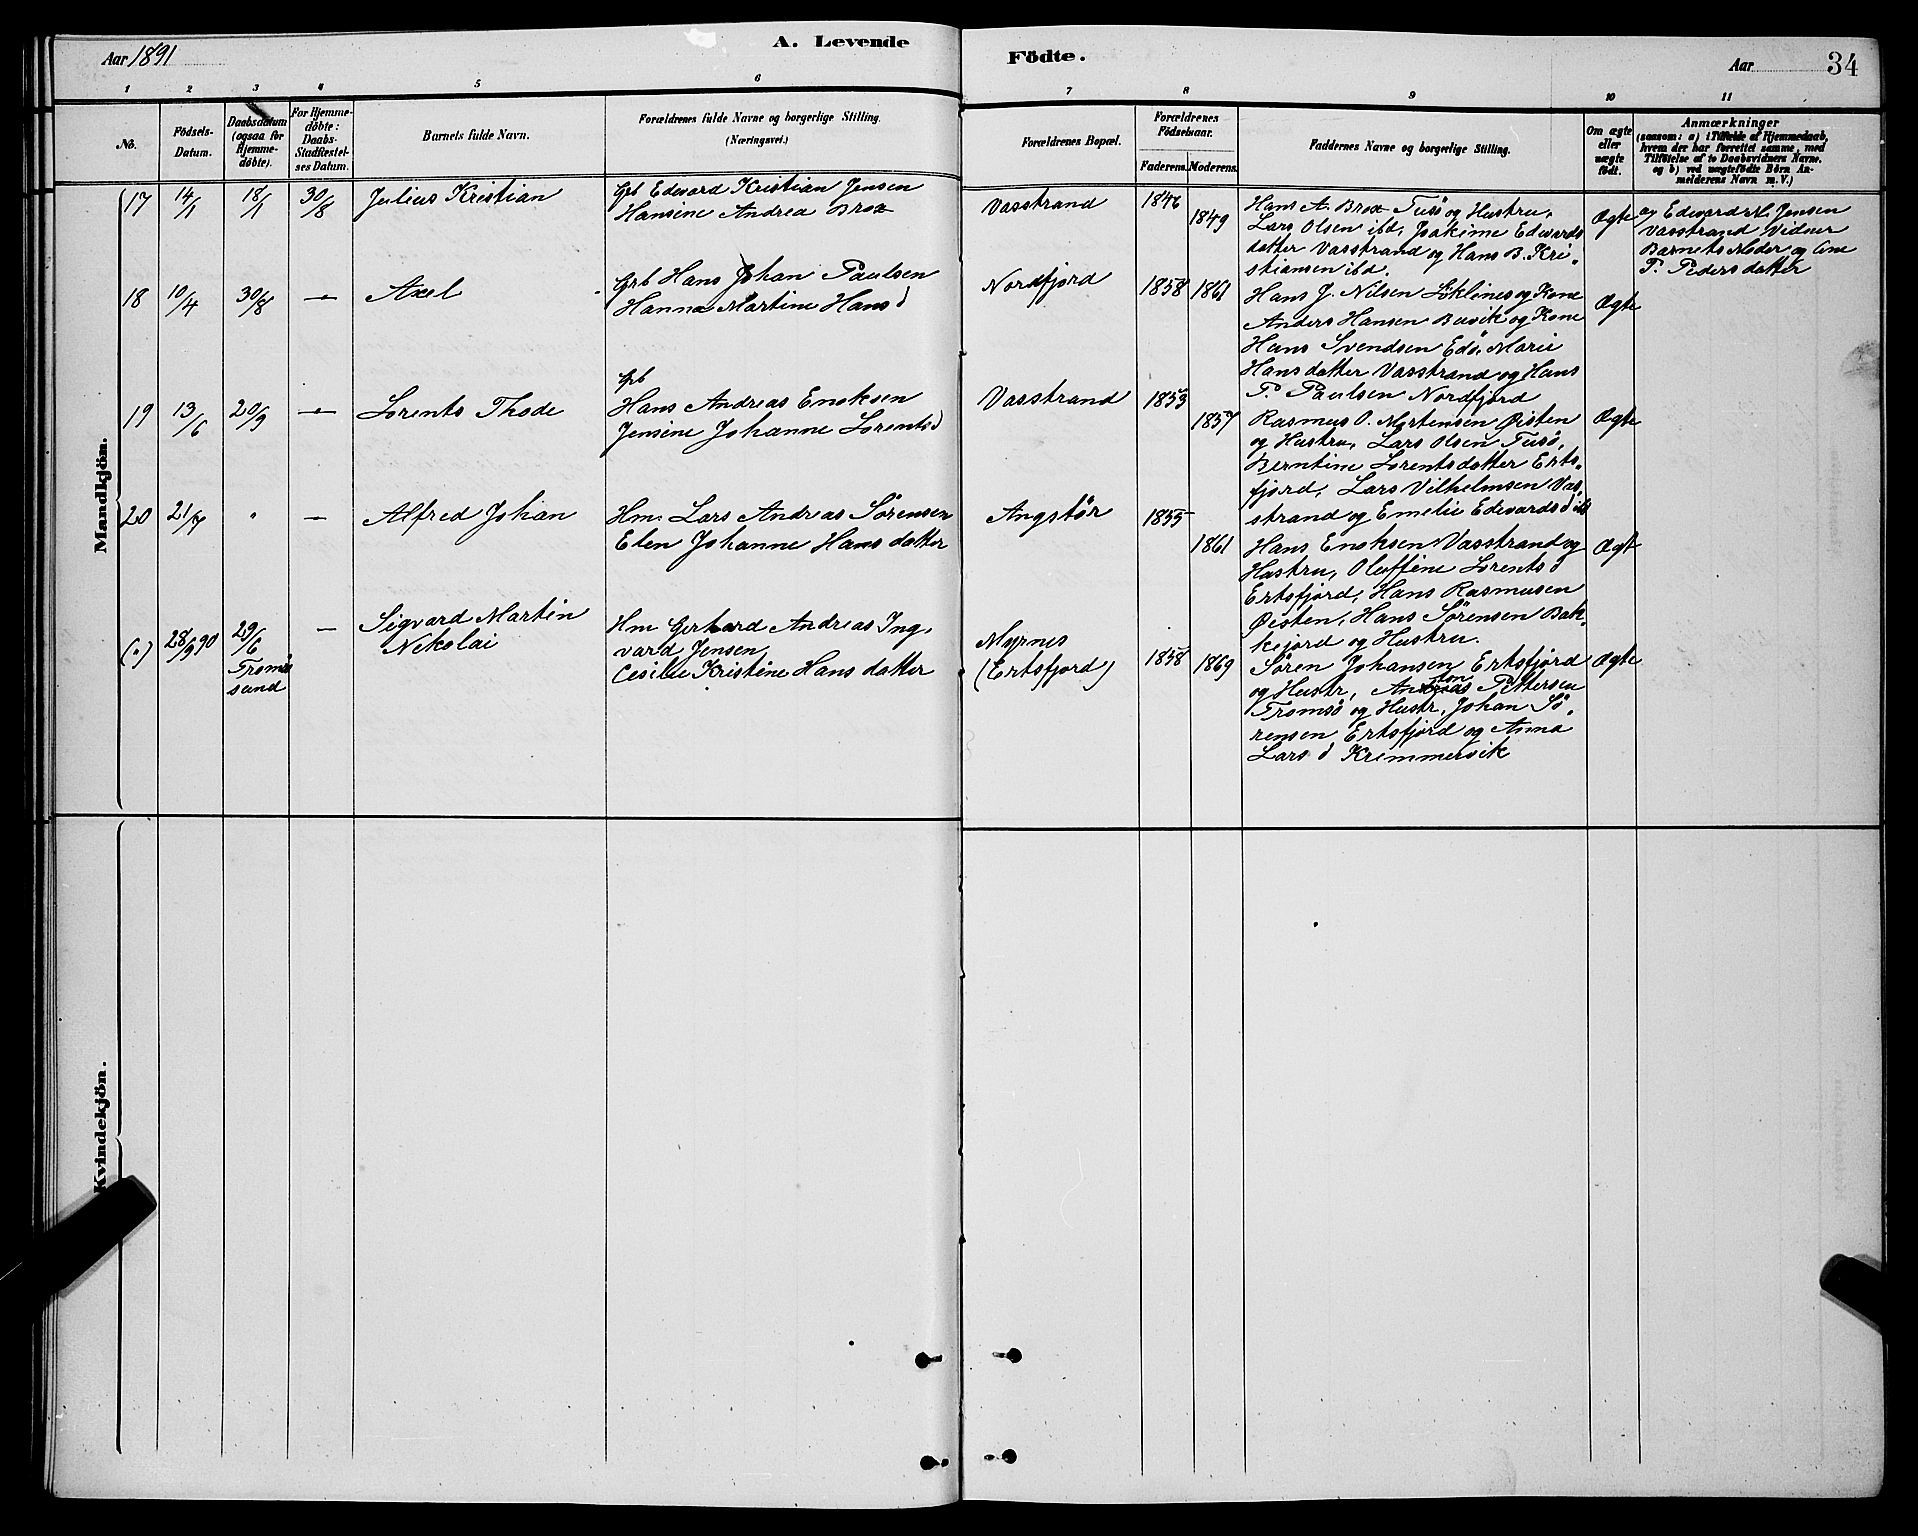 Aar 1891
A. Levende
Födte.
Aar
34
1 2 3 4 5 6 7 8 9 10 11
No.
Födsels-
Datum.
Daabsdatum
(ogsaa for
Hjemme-
döbte).
For Hjemme-
döbte:
Daabs-
Stadfæstel-
ses Datum.
Barnets fulde Navn.
Forældrenes fulde Navne og borgerlige Stilling.
(Næringsvei.)
Forældrenes Bopæl.
Forældrenes
Födselsaar.
Faderens. Moderens.
Faddernes Navne og borgerlige Stilling.
Om ægte
eller
uægte
födt.
Anmærkninger
(saasom: a) i Tilfælde af Hjemmedaab,
hvem der har forrettet samme, med
Tilföielse af to Daabsvidners Navne,
og b) ved uægtefödte Börn An-
melderens Navn m. V.)
Mandkjön.
17 14/1 18/1 30/8 Julius Kristian
Grb Edevard Kristian Jensen
Hansine Andrea Brox
Vasstrand 1846
1849
Hans A. Brox Tusö og Hustru,
Lars Olsen ibd, Joakime Edevards
datter Vasstrand og Hans B. Kri-
stiansen ibd.
Ægte
a, Edevard M. Jensen
Vasstrand Vidner
Barnets Moder og Ane
P. Pedersdatter
18 10/4 30/8 — Axel
Grb Hans Johan Paulsen
Hanna Martine Hansd
Nordfjord 1858 1861
Hans J. Nilsen og Kone
Anders Hansen Buvik og Kone
Hans Svendsen Edö, Marie
Hansdatter Vasstrand og Hans
P. Paulsen Nordfjord
Ægte
19 13/6 20/9 — Lorents Thode
Grb
Hans Andreas Enoksen
Jensine Johanne Lorentsd
Vasstrand 1853
1857
Rasmus O. Mortensen Øisten
og Hustru, Lars Olsen Tusö,
Berntine Lorentsdatter Erts-
fjord, Lars Vilhelmsen Vas-
strand og Emelie Edevardsd ibd
Ægte
20 21/7 " — Alfred Johan
Hm. Lars Andreas Sörensen
Elen Johanne Hansdatter
Angstör 1855
1861
Hans Enoksen Vasstrand og
Hustru, Oluffine Lorentsd
Ertsfjord, Hans Rasmusen
Øisten, Hans Sörensen Bak-
kejord og Hustru.
Ægte
(") 28/9 90 29/6
Tromsö
sund
— Sigvard Martin
Nikolai
Hm Gerhard Andreas Ing-
vard Jensen
Cesilie Kristine Hansdatter
Myrnes
(Ertsfjord)
1858 1869
Sören Johansen Ertsfjord
og Hustr, Anton Pettersen
Tromsö og Hustr, Johan Sö-
rensen Ertsfjord og Anna
Larsd Kremmervik
Ægte
Kvindekjön.